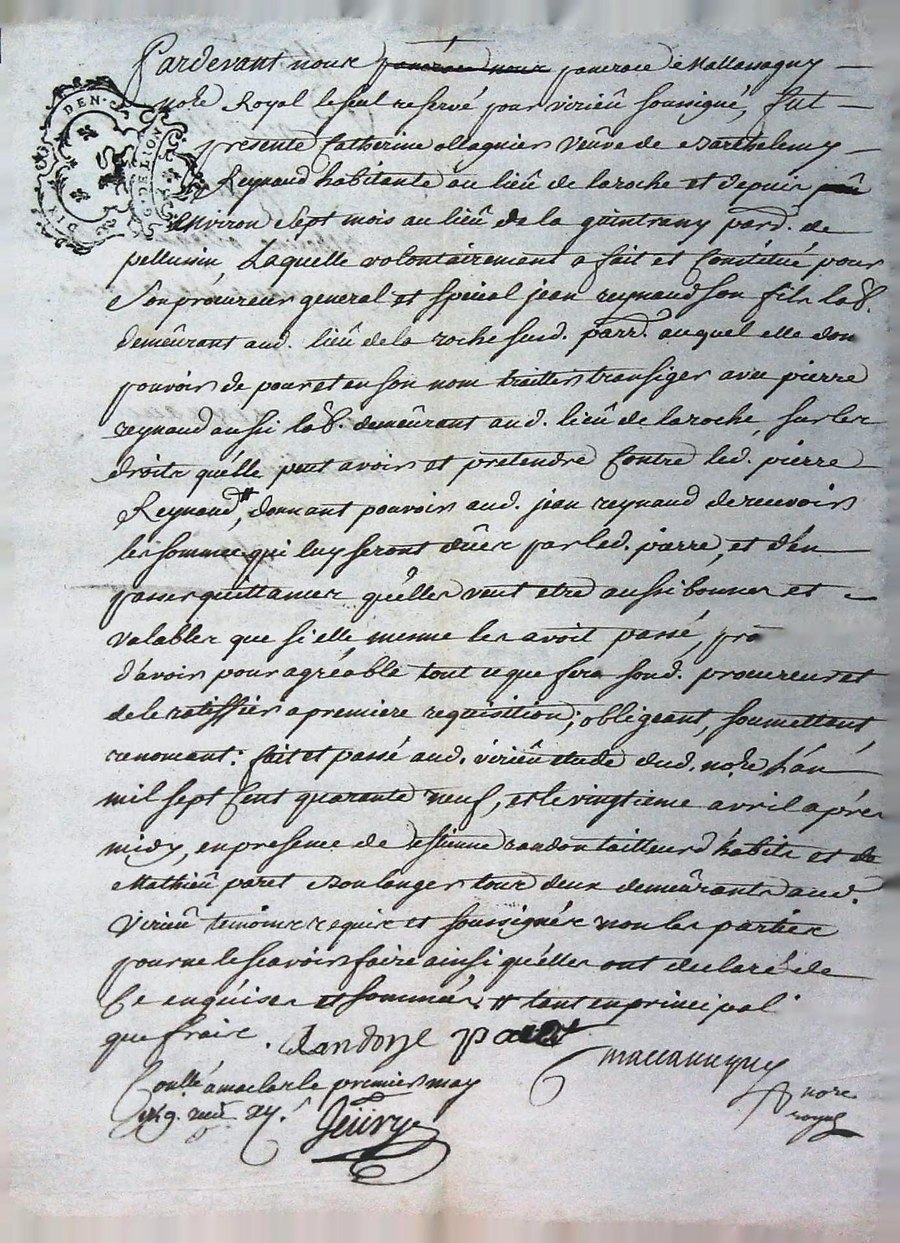 DEN
G. DE LION
Pardevant nous pancrace nous pancrace Mallassagny
nore Royal le seul reservé pour virieû soussigné, fut
presente Catherine ollagnier veuve de Barthelemy
Reynaud habitante au lieû de la roche et depuis
Environ Sept mois au lieû de la quintrany pard. de
pellussin Laquelle volontairement a fait et Constitué pour
son procureur general et special jean reynaud son fils lab.
demeûrant aud. lieû de la roche susd. parrd. auquel elle don
pouvoir de pour et en son nom traitter transiger avec pierre
reynaud aussi lab. demeûrant aud. lieû de la roche, sur les
droits qu'elle peut avoir et pretendre Contre led. pierre
Reynaud #, donnant pouvoir aud. jean reynaud de recevoir
les sommes qui luy seront dües par led. pierre, et d'en
passer quittances qu'elles veut etre aussi bonnes et
valables que si elle mesme les avoit passé, pro
d'avoir pour agréable tout ce que fera sond. procureur et
de le ratiffier a premiere requisition; obligeant, soumettant
renonceant: fait et passé aud. virieû etude dud. nore L'an
mil sept Cent quarante neuf, et le vingtieme avril aprés
midy, en presence de estienne randon tailleur d'habits et de
Mathieû paret Boulanger tous deux demeûrants aud.
Virieû temoins requis et soussignés non les parties
pour ne le scavoir faire ainsi qu'elles ont declaré de
Ce enquises et sommées # tant en principal
que frais. Randon paret
nore
royal
Conllé a maclas le premier may